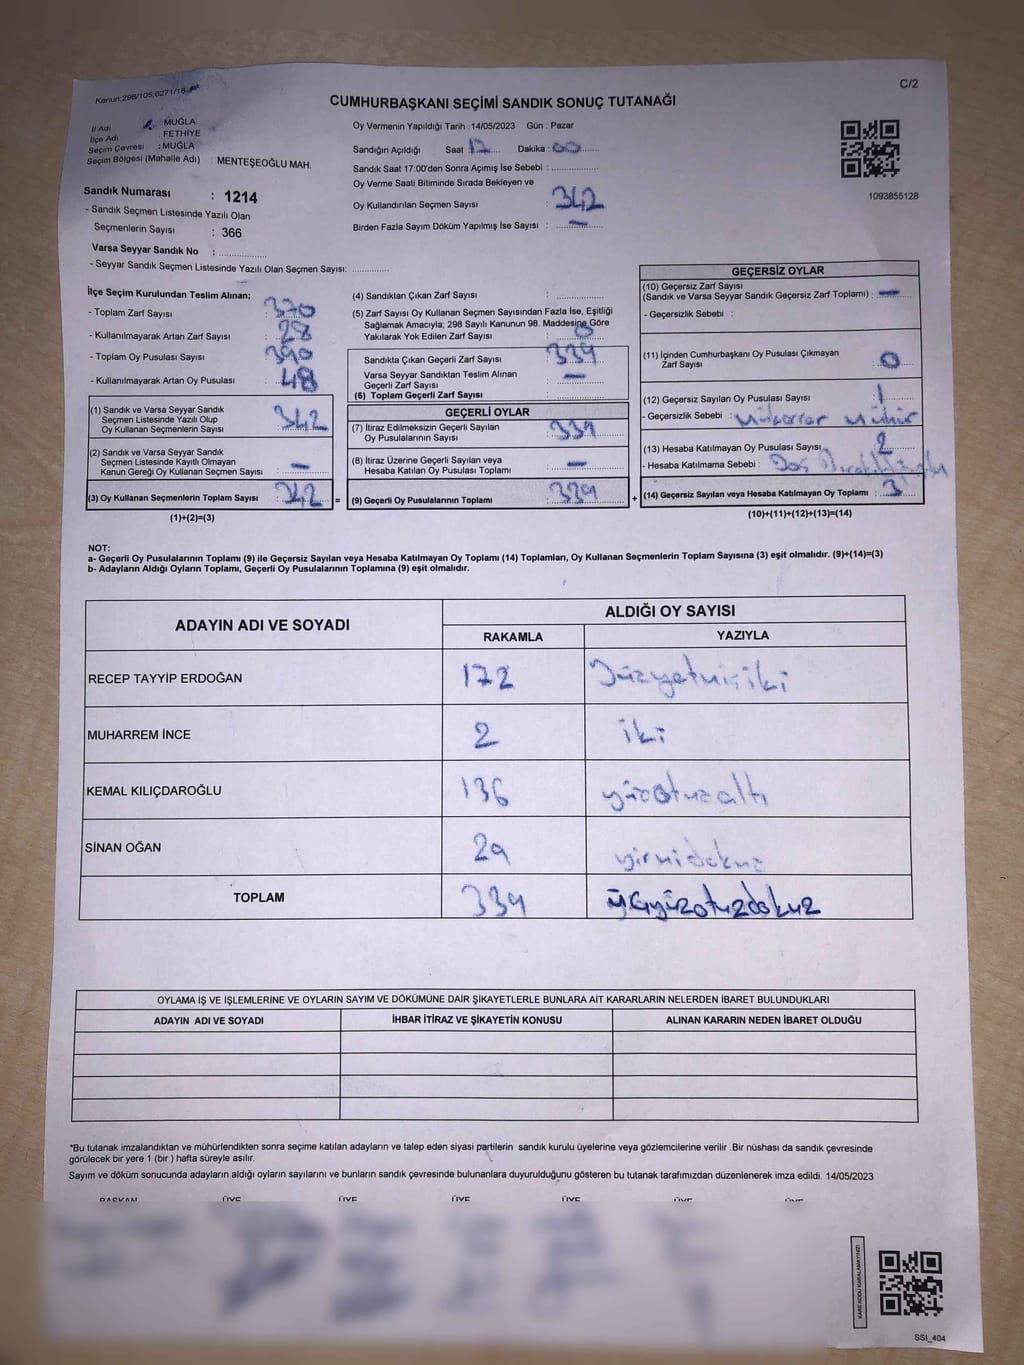 Kanun:298/105,6271/18
C/2
CUMHURBAŞKANI SEÇİMİ SANDIK SONUÇ TUTANAĞI
İl Adı : MUĞLA
İlçe Adı FETHİYE
Seçim Çevresi : MUĞLA
Seçim Bölgesi (Mahalle Adı) : MENTEŞEOĞLU MAH.
Sandık Numarası : 1214
- Sandık Seçmen Listesinde Yazılı Olan
Seçmenlerin Sayısı : 366
Varsa Seyyar Sandık No :
- Seyyar Sandık Seçmen Listesinde Yazılı Olan Seçmen Sayısı:
Oy Vermenin Yapıldığı Tarih :14/05/2023 Gün : Pazar
Sandığın Açıldığı Saat : 17 Dakika : 00
Sandık Saat 17:00'den Sonra Açımış İse Sebebi :
Oy Verme Saati Bitiminde Sırada Bekleyen ve
Oy Kullandırılan Seçmen Sayısı : 342
Birden Fazla Sayım Döküm Yapılmış İse Sayısı : —
1093855128
İlçe Seçim Kurulundan Teslim Alınan;
- Toplam Zarf Sayısı : 370
- Kullanılmayarak Artan Zarf Sayısı : 28
- Toplam Oy Pusulası Sayısı : 390
- Kullanılmayarak Artan Oy Pusulası : 48
(1) Sandık ve Varsa Seyyar Sandık
Seçmen Listesinde Yazılı Olup
Oy Kullanan Seçmenlerin Sayısı : 342
(2) Sandık ve Varsa Seyyar Sandık
Seçmen Listesinde Kayıtlı Olmayan
Kanun Gereği Oy Kullanan Seçmen Sayısı : —
(3) Oy Kullanan Seçmenlerin Toplam Sayısı : 342
(1)+(2)=(3)
(4) Sandıktan Çıkan Zarf Sayısı :
(5) Zarf Sayısı Oy Kullanan Seçmen Sayısından Fazla İse, Eşitliği
Sağlamak Amacıyla; 298 Sayılı Kanunun 98. Maddesine Göre
Yakılarak Yok Edilen Zarf Sayısı : 0
Sandıkta Çıkan Geçerli Zarf Sayısı : 339
Varsa Seyyar Sandıktan Teslim Alınan
Geçerli Zarf Sayısı : —
(6) Toplam Geçerli Zarf Sayısı :
GEÇERLİ OYLAR
(7) İtiraz Edilmeksizin Geçerli Sayılan
Oy Pusulalarının Sayısı : 339
(8) İtiraz Üzerine Geçerli Sayılan veya
Hesaba Katılan Oy Pusulası Toplamı : —
= (9) Geçerli Oy Pusulalarının Toplamı : 339 +
GEÇERSİZ OYLAR
(10) Geçersiz Zarf Sayısı
(Sandık ve Varsa Seyyar Sandık Geçersiz Zarf Toplamı) : —
- Geçersizlik Sebebi :
(11) İçinden Cumhurbaşkanı Oy Pusulası Çıkmayan
Zarf Sayısı : 0
(12) Geçersiz Sayılan Oy Pusulası Sayısı : 1
- Geçersizlik Sebebi : Mükerrer Mühür
(13) Hesaba Katılmayan Oy Pusulası Sayısı : 2
- Hesaba Katılmama Sebebi :
(14) Geçersiz Sayılan veya Hesaba Katılmayan Oy Toplamı : 3
(10)+(11)+(12)+(13)=(14)
NOT:
a- Geçerli Oy Pusulalarının Toplamı (9) ile Geçersiz Sayılan veya Hesaba Katılmayan Oy Toplamı (14) Toplamları, Oy Kullanan Seçmenlerin Toplam Sayısına (3) eşit olmalıdır. (9)+(14)=(3)
b- Adayların Aldığı Oyların Toplamı, Geçerli Oy Pusulalarının Toplamına (9) eşit olmalıdır.
ADAYIN ADI VE SOYADI
ALDIĞI OY SAYISI
RAKAMLA YAZIYLA
RECEP TAYYİP ERDOĞAN 172 yüzyetmişiki
MUHARREM İNCE 2 iki
KEMAL KILIÇDAROĞLU 136 yüzotuzaltı
SİNAN OĞAN 29 yirmidokuz
TOPLAM 339 üçyüzotuzdokuz
OYLAMA İŞ VE İŞLEMLERİNE VE OYLARIN SAYIM VE DÖKÜMÜNE DAİR ŞİKAYETLERLE BUNLARA AİT KARARLARIN NELERDEN İBARET BULUNDUKLARI
ADAYIN ADI VE SOYADI İHBAR İTİRAZ VE ŞİKAYETİN KONUSU ALINAN KARARIN NEDEN İBARET OLDUĞU
*Bu tutanak imzalandıktan ve mühürlendikten sonra seçime katılan adayların ve talep eden siyasi partilerin sandık kurulu üyelerine veya gözlemcilerine verilir .Bir nüshası da sandık çevresinde
görülecek bir yere 1 (bir ) hafta süreyle asılır.
Sayım ve döküm sonucunda adayların aldığı oyların sayılarını ve bunların sandık çevresinde bulunanlara duyurulduğunu gösteren bu tutanak tarafımızdan düzenlenerek imza edildi. 14/05/2023
BAŞKAN ÜYE ÜYE ÜYE ÜYE ÜYE ÜYE
KARE KODU KARALAMAYINIZ!
SSI_404